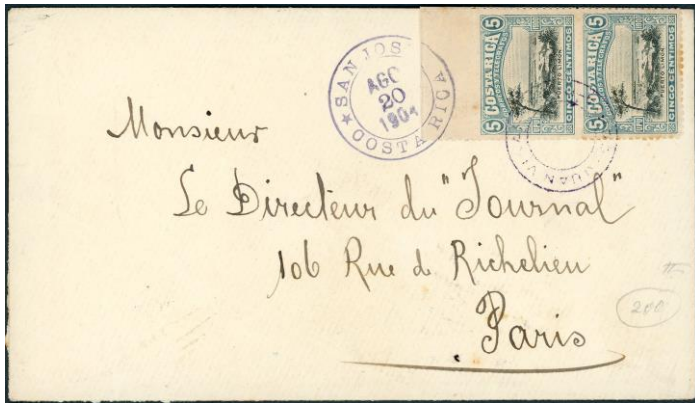 SAN JOS
AGO
20
1901
COSTA RICA
5 COSTA RICA 5
CINCO CENTIMOS
5 COSTA RICA 5
CINCO CENTIMOS
JUAN VI
Monsieur
Le Directeur du "Journal"
106 Rue de Richelieu
Paris
200